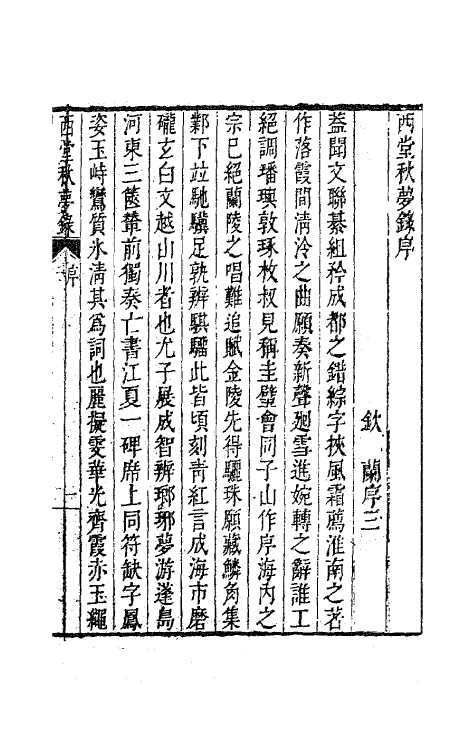 西堂秋夢錄序
欽 蘭序三
蓋聞文聯綦組矜成都之錯綜字挾風霜薦淮南之著
作落霞間清泠之曲願奏新聲廻雪進婉轉之辭誰工
絕調璠璵敦琢枚叔見稱圭璧會同子山作序海內之
宗已絕蘭陵之唱難追賦金陵先得驪珠願藏鱗角集
鄴下竝馳驥足孰辨騏驑此皆頃刻靑紅言成海市磨
礲玄白文越山川者也尤子展成智辨瑯琊夢游蓬島
河東三篋輦前獨奏亡書江夏一碑席上同符缺字鳳
姿玉峙鸞質氷淸其爲詞也麗擬雯華光齊霞赤玉繩
西堂秋夢錄 序 一